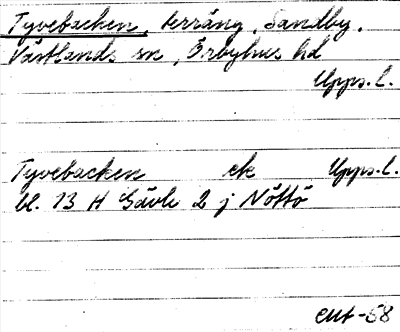 Tyvebacken, terräng, Sandby,
Västlands sn, Örbyhus hd
Upps.l.
Tyvebacken ek Upps.l.
bl. 13 H Gävle 2 j Nöttö
EUt-68